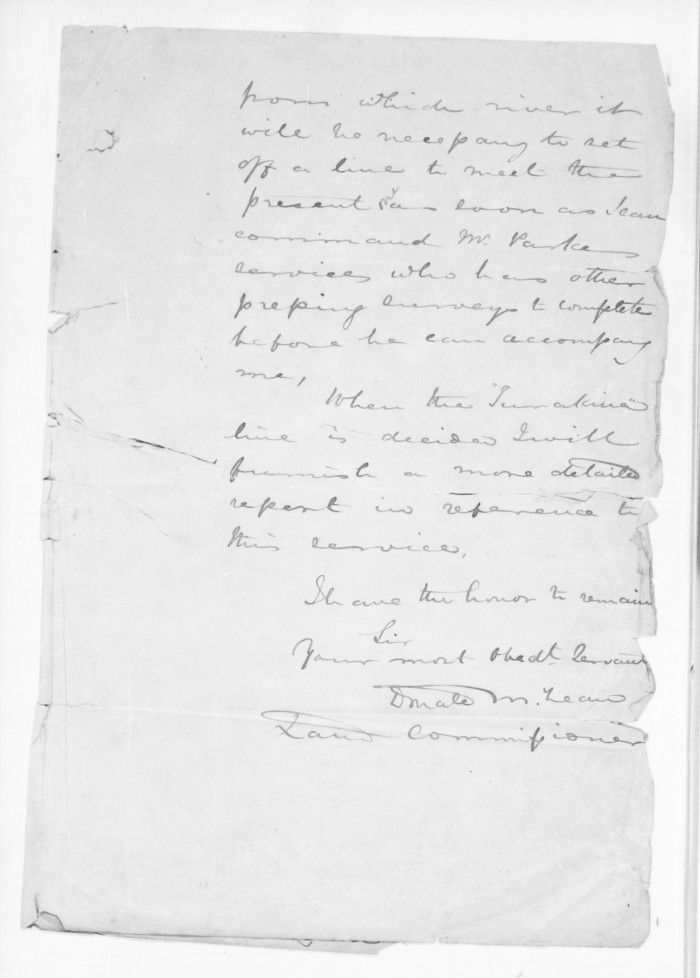 from which river it
will be necessary to set
off a line to meet the
present as soon as I can
command Mr. Parkes
services who has other
pressing surveys to complete
before he can accompany
me,
When the "Turakina"
line is decided I will
furnish a more detailed
report in reference to
this service.
I have the honor to remain
Sir
Your most obedt. Servant
Donald McLean
Land Commissioner